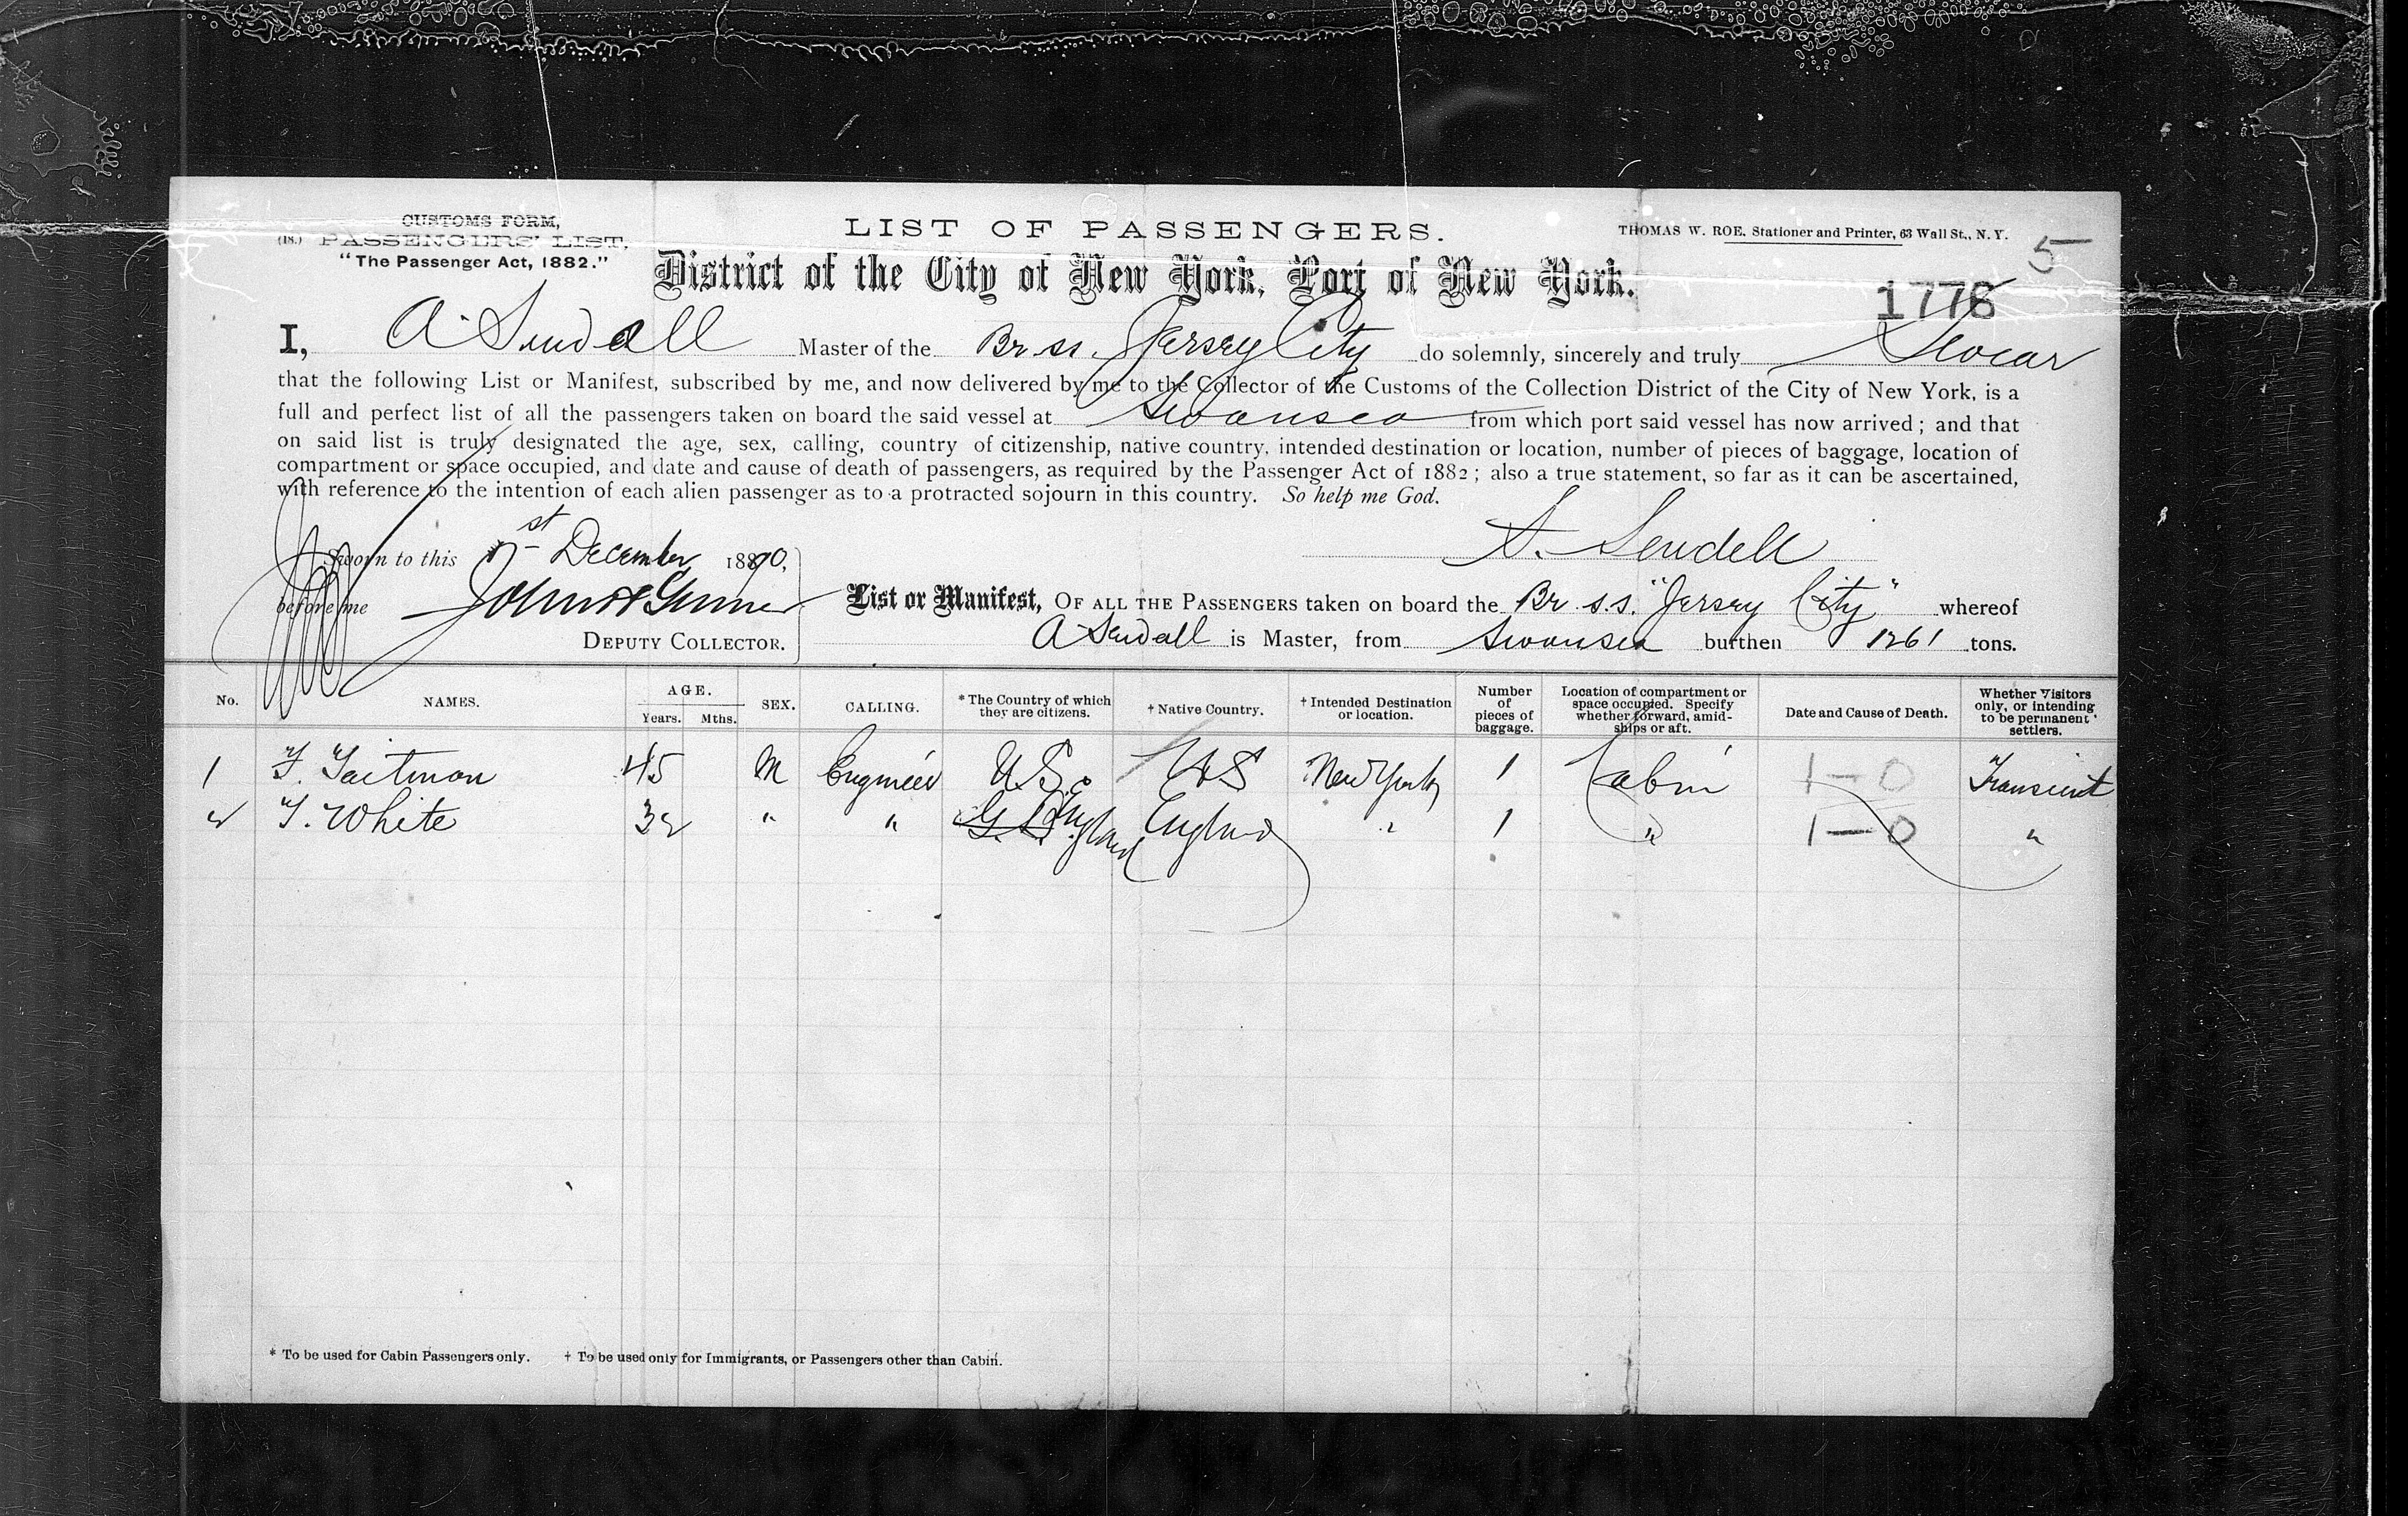 CUSTOMS FORM,
(18.) PASSENGERS' LIST,
"The Passenger Act, 1882."
LIST OF PASSENGERS.
THOMAS W. ROE, Stationer and Printer, 63 Wall St., N. Y.
5
District of the City of New York, Port of New York.
1776
I, A. Sendall Master of the Br ss. Jersey City do solemnly, sincerely and truly Swear
that the following List or Manifest, subscribed by me, and now delivered by me to the Collector of the Customs of the Collection District of the City of New York, is a
full and perfect list of all the passengers taken on board the said vessel at Swansea from which port said vessel has now arrived; and that
on said list is truly designated the age, sex, calling, country of citizenship, native country, intended destination or location, number of pieces of baggage, location of
compartment or space occupied, and date and cause of death of passengers, as required by the Passenger Act of 1882; also a true statement, so far as it can be ascertained,
with reference to the intention of each alien passenger as to a protracted sojourn in this country. So help me God.
A. Sendell
Sworn to this 1st December 1890,
before me John
DEPUTY COLLECTOR.
List or Manifest, OF ALL THE PASSENGERS taken on board the Br. s.s. "Jersey City" whereof
A Sendall is Master, from Swansea burthen 1261 tons.
No. NAMES. AGE. Years. Mths. SEX. CALLING. * The Country of which they are citizens. † Native Country. † Intended Destination or location. Number of pieces of baggage. Location of compartment or space occupied. Specify whether forward, amidships or aft. Date and Cause of Death. Whether Visitors only, or intending to be permanent settlers.
1 F. Taitman 45 M Engineer U.S. US New York 1 Cabin 1-0 Transient
2 T. White 32 " " G.B. England England " 1 " 1-0 "
* To be used for Cabin Passengers only. † To be used only for Immigrants, or Passengers other than Cabin.